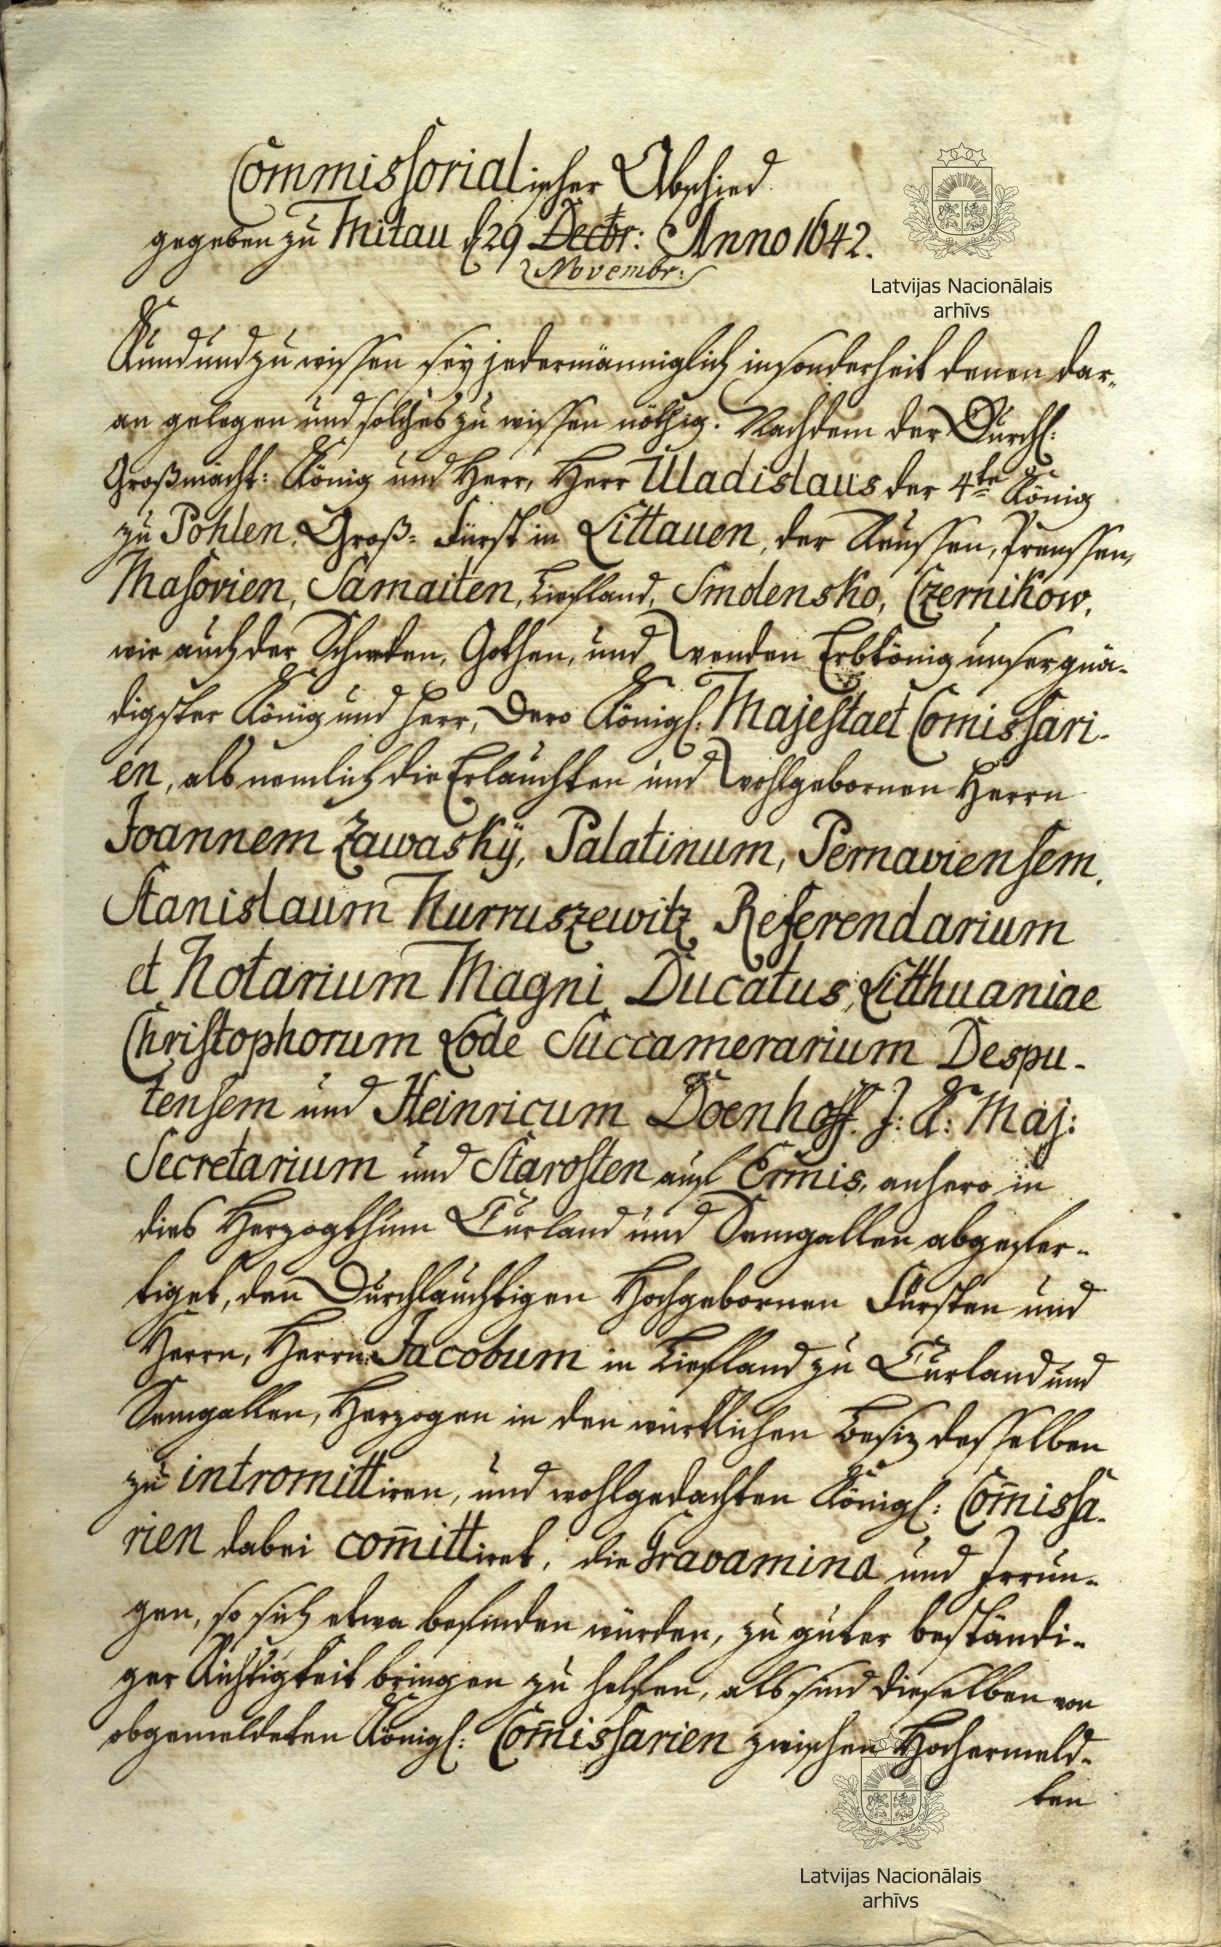 Commissorialischer Abschied
gegeben zu Mitau d 29 Decbr: Anno 1642.
Novembr:
Latvijas Nacionālais
arhīvs
Kund und zu wissen sey jedermänniglich insonderheit denen dar-
an gelegen und solches zu wissen nöthig. Nachdem der Durchl:
Großmächt: König und Herr, Herr Uladislaus der 4te König
zu Pohlen, Groß- Fürst in Littauen, der Reussen, Preussen,
Masovien, Samaiten, Liefland, Smolensko, Czernikow,
wie auch der Schweden, Gothen, und Wenden Erbkönig unser gnä-
digster König und Herr, Dero Königl: Majestaet Comissari-
en, als nemlich die Erlauchten und Wohlgebornen Herrn
Joannem Zawasky, Palatinum, Pernaviensem,
Stanislaum Nurruszewitz Referendarium
et Notarium Magni Ducatus Litthuaniae
Christophorum Lode Succamerarium Despu-
tensem und Heinricum Doenhoff. J: K: Maj:
Secretarium und Starosten auf Ermis, anhero in
dies Herzogthum Curland und Semgallen abgefer-
tiget, den Durchlauchtigen Hochgebornen Fürsten und
Herrn, Herrn Jacobum in Liefland zu Curland und
Semgallen, Herzogen in den würklichen Besiz desselben
zu intromittiren, und wohlgedachten Königl: Com̄issa-
rien dabei com̄ittiret, die Gravamina und Irrun-
gen, so sich etwa befinden würden, zu guter beständi-
ger Richtigkeit bringen zu helfen, als sind dieselben von
obgemeldeten Königl: Com̄issarien zwischen Hochermeld-
ten
Latvijas Nacionālais
arhīvs